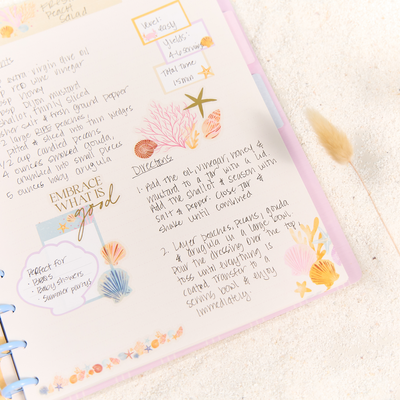 Salad
Level:
easy
Yields:
4-6 servings
Total time
15 min
extra virgin olive oil
red wine vinegar
honey
Dijon mustard
shallot, thinly sliced
kosher salt & fresh ground pepper
2 large ripe peaches,
pitted & sliced into thin wedges
1/2 cup candied pecans,
4 ounces smoked gouda,
crumbled into small pieces
5 ounces baby arugula
EMBRACE
WHAT IS
good
Perfect for
• BBQs
• Baby showers
• Summer parties
Directions
1. Add the oil, vinegar, honey &
mustard to a jar with a lid
Add the shallot & season with
salt & pepper. Close jar &
shake until combined
2. Layer peaches, pecans, gouda
& arugula in a large bowl.
Pour the dressing over the top
toss until everything is
coated. Transfer to a
serving bowl & enjoy
immediately